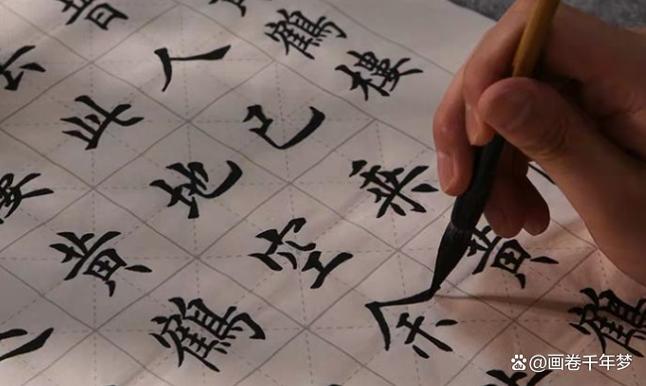 鶴樓
昔人已乘黄鶴
去此地空余
樓黄鶴
@画卷千年梦